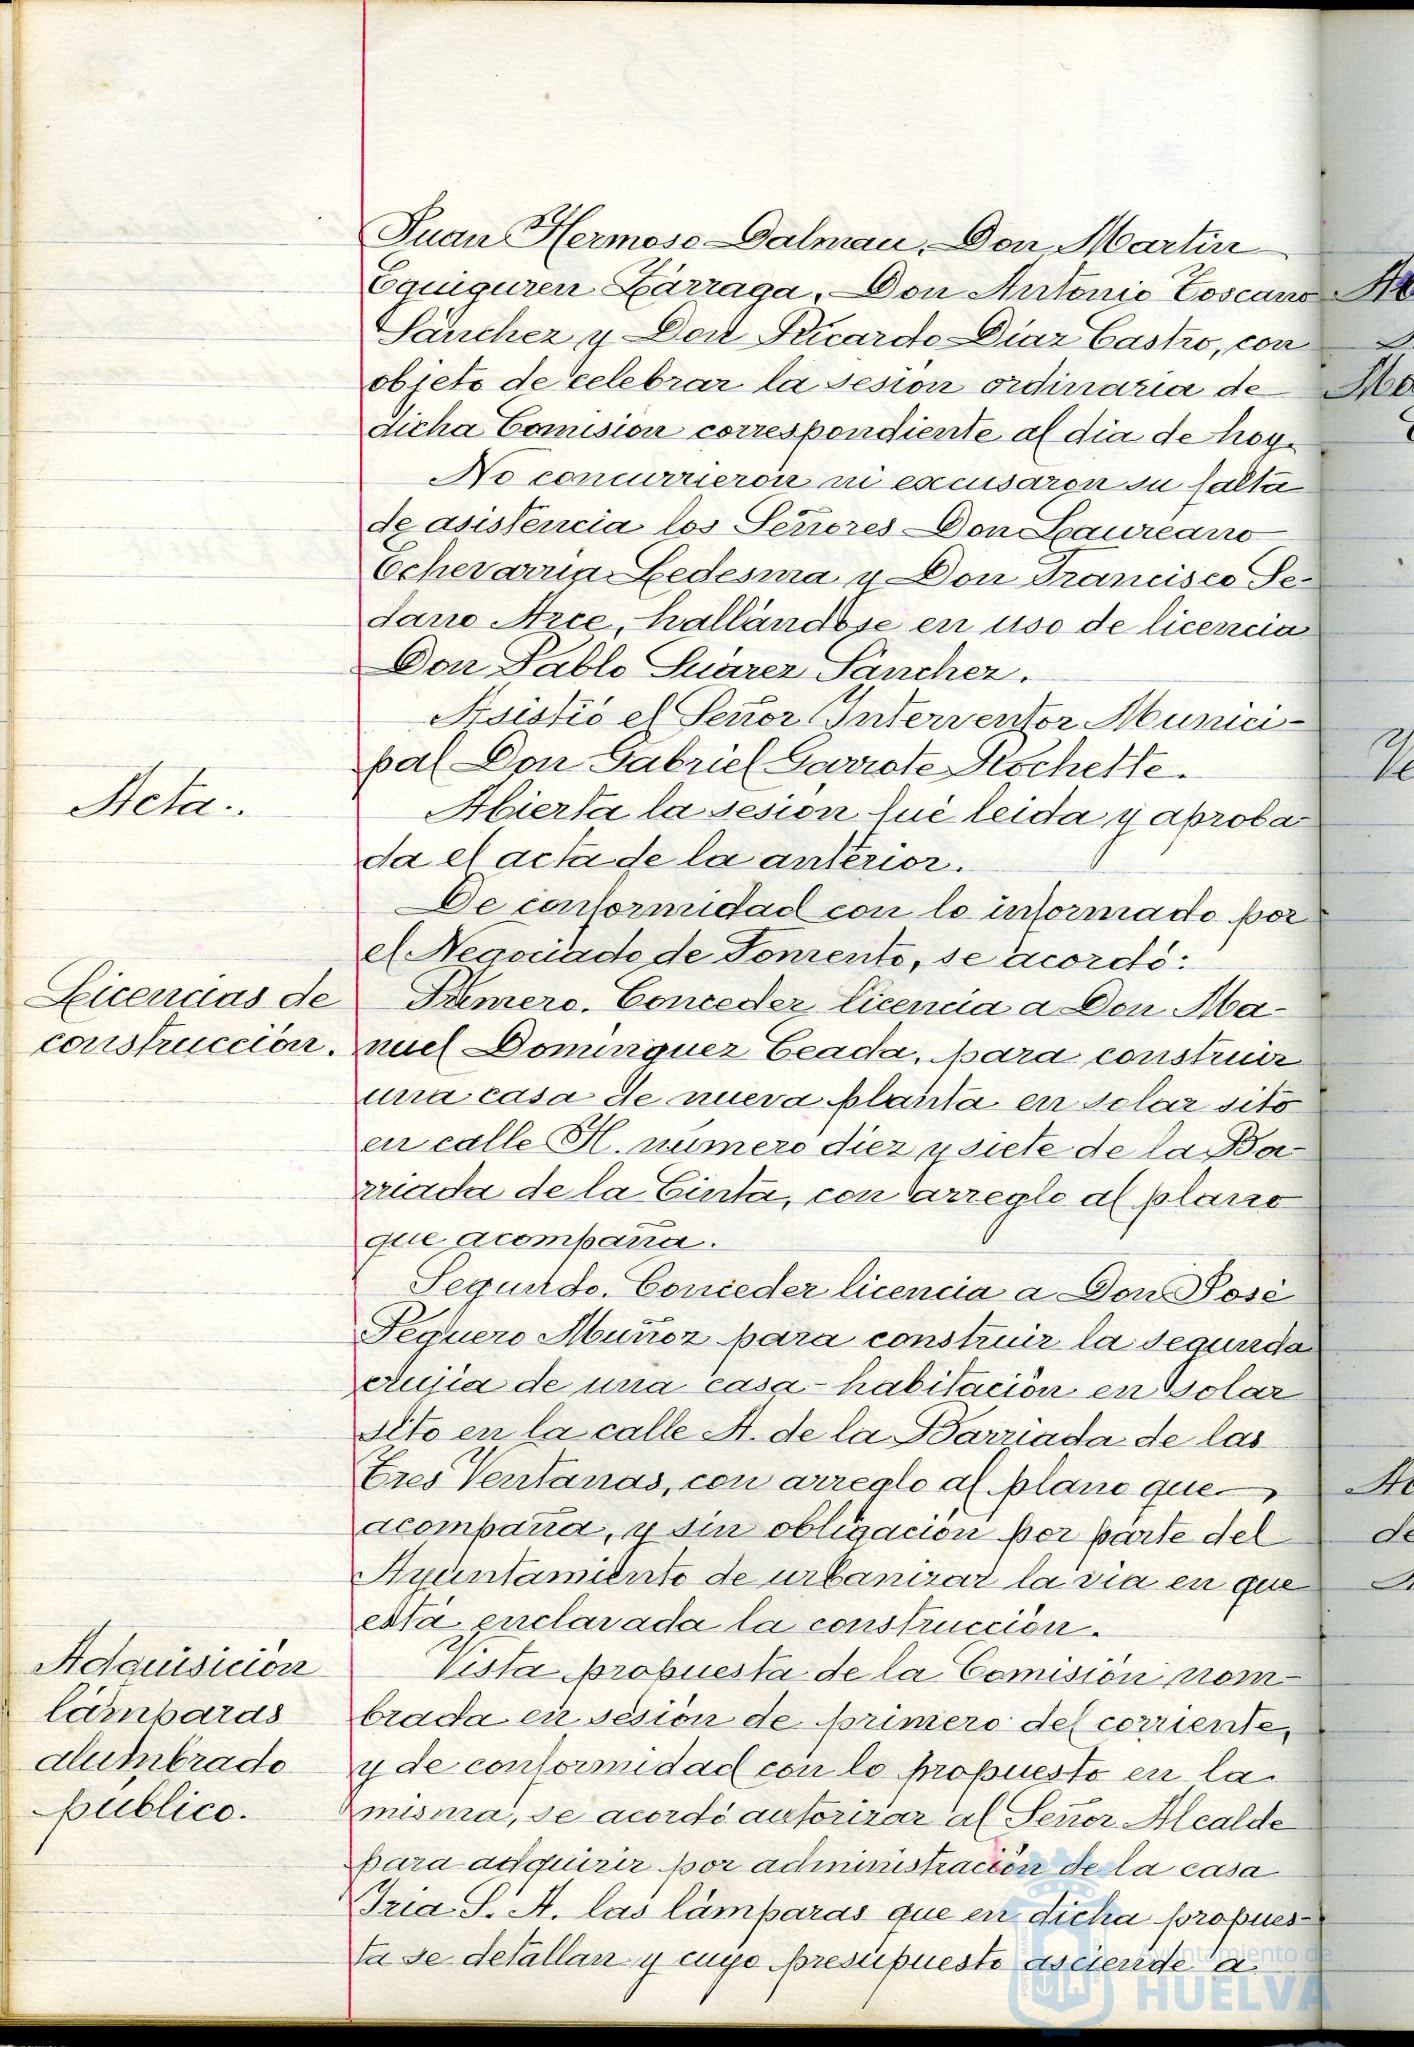 Juan Hermoso Dalmau, Don Martin
Eguiguren Zárraga, Don Antonio Toscano
Sánchez y Don Ricardo Díaz Castro, con
objeto de celebrar la sesión ordinaria de
dicha Comisión correspondiente al dia de hoy.
No concurrieron ni excusaron su falta
de asistencia los Señores Don Laureano
Echevarria Ledesma y Don Francisco Se-
dano Arce, hallándose en uso de licencia
Don Pablo Suárez Sánchez.
Asistió el Señor Interventor Munici-
pal Don Gabriel Garrote Rochette.
Acta.
Abierta la sesión fué leida y aproba-
da el acta de la anterior.
De conformidad con lo informado por
el Negociado de Fomento, se acordó:
Licencias de
construcción.
Primero. Conceder licencia a Don Ma-
nuel Dominguez Ceada, para construir
una casa de nueva planta en solar sito
en calle H. número diez y siete de la Ba-
rriada de la Cinta, con arreglo al plano
que acompaña.
Segundo. Conceder licencia a Don José
Pequero Muñoz para construir la segunda
crujia de una casa-habitación en solar
sito en la calle A. de la Barriada de las
Tres Ventanas, con arreglo al plano que
acompaña, y sin obligación por parte del
Ayuntamiento de urbanizar la via en que
está enclavada la construcción.
Adquisición
lámparas
alumbrado
público.
Vista propuesta de la Comisión nom-
brada en sesión de primero del corriente,
y de conformidad con lo propuesto en la
misma, se acordó autorizar al Señor Alcalde
para adquirir por administración de la casa
Iria S. A. las lámparas que en dicha propues-
ta se detallan y cuyo presupuesto asciende a
Ayuntamiento de
HUELVA